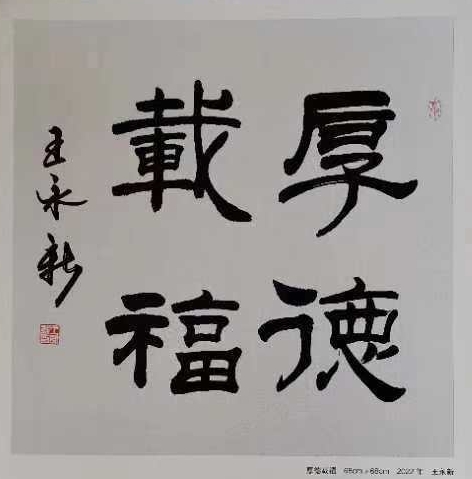 厚德
載福
王永新
厚德載福 68cm×68cm 2022年 王永新